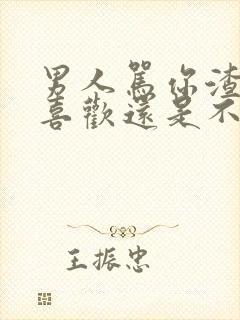 男人罵你渣
喜歡還是不
王振忠